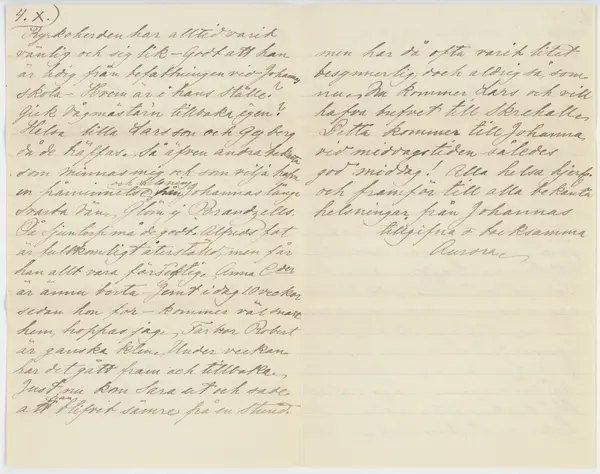 4. X.)
Kyrkoherden har alltid varit
vänlig och sig lik – Godt att han
är ledig från befattningen vid Johannes
skola – Hvem är i hans ställe?
Gick vågmästarn tillbaka igen?
Helsa lilla Larsson och Gyberg
då de träffas. Så äfven andra bekanta
som minnas mig och som vilja hafva
en påminnelse och helsning från Johannas
svarta vän. Glöm ej Brandzells.
På Sjuntorp må de godt. Alfreds fot
är fullkomligt återställd, men får
han allt vara försigtig. Anna
är ännu borta. Jemt i dag 10 veckor
sedan hon for – kommer väl snart
hem, hoppas jag. Farbror Robert
är ganska klen. Under veckan
har det gått fram och tillbaka.
Just nu kom Sara ut och sade
att han blifvit sämre på en stund
men har då ofta varit litet
besynnerlig, doch aldrig så, som
nu. Nu kommer Lars och vill
hafva brefvet till Skrehalla.
Detta kommer till Johanna
vid middagstiden således
god middag! Alla helsa hjertl.
och framför till alla bekanta
helsningar från Johannas
tillgifna o tacksamma
Aurora